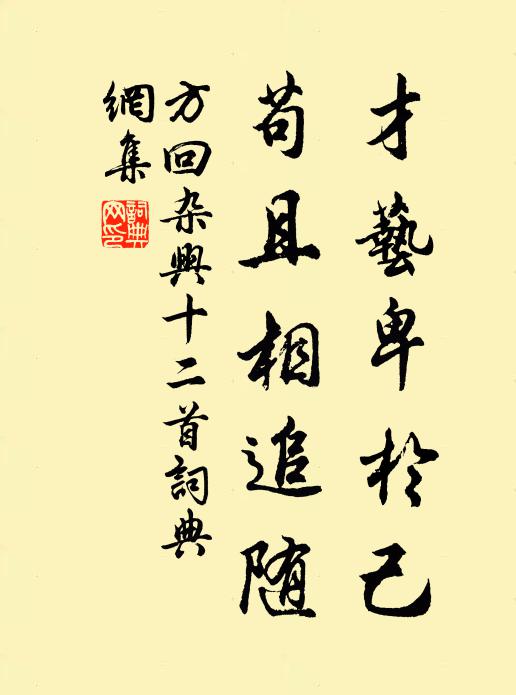 才藝卑於己
苟且相追随
方回杂興十二首詞典
網集
詞典網印